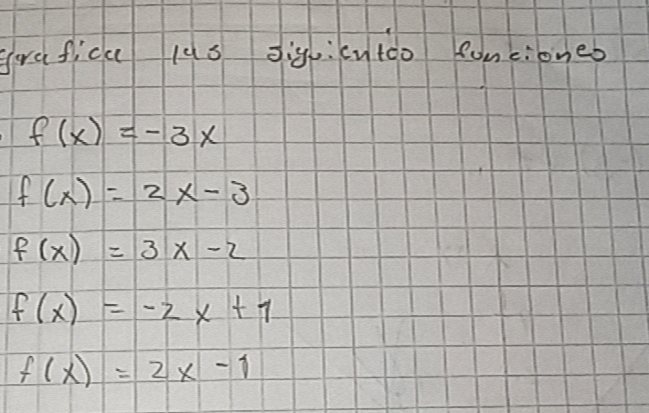 grafica las siguientes funciones
f(x) = -3x
f(x) = 2x - 3
f(x) = 3x - 2
f(x) = -2x + 1
f(x) = 2x - 1